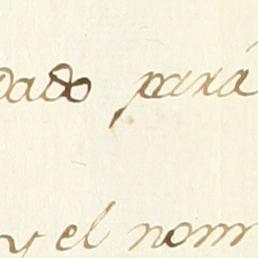 dado para
y el nom